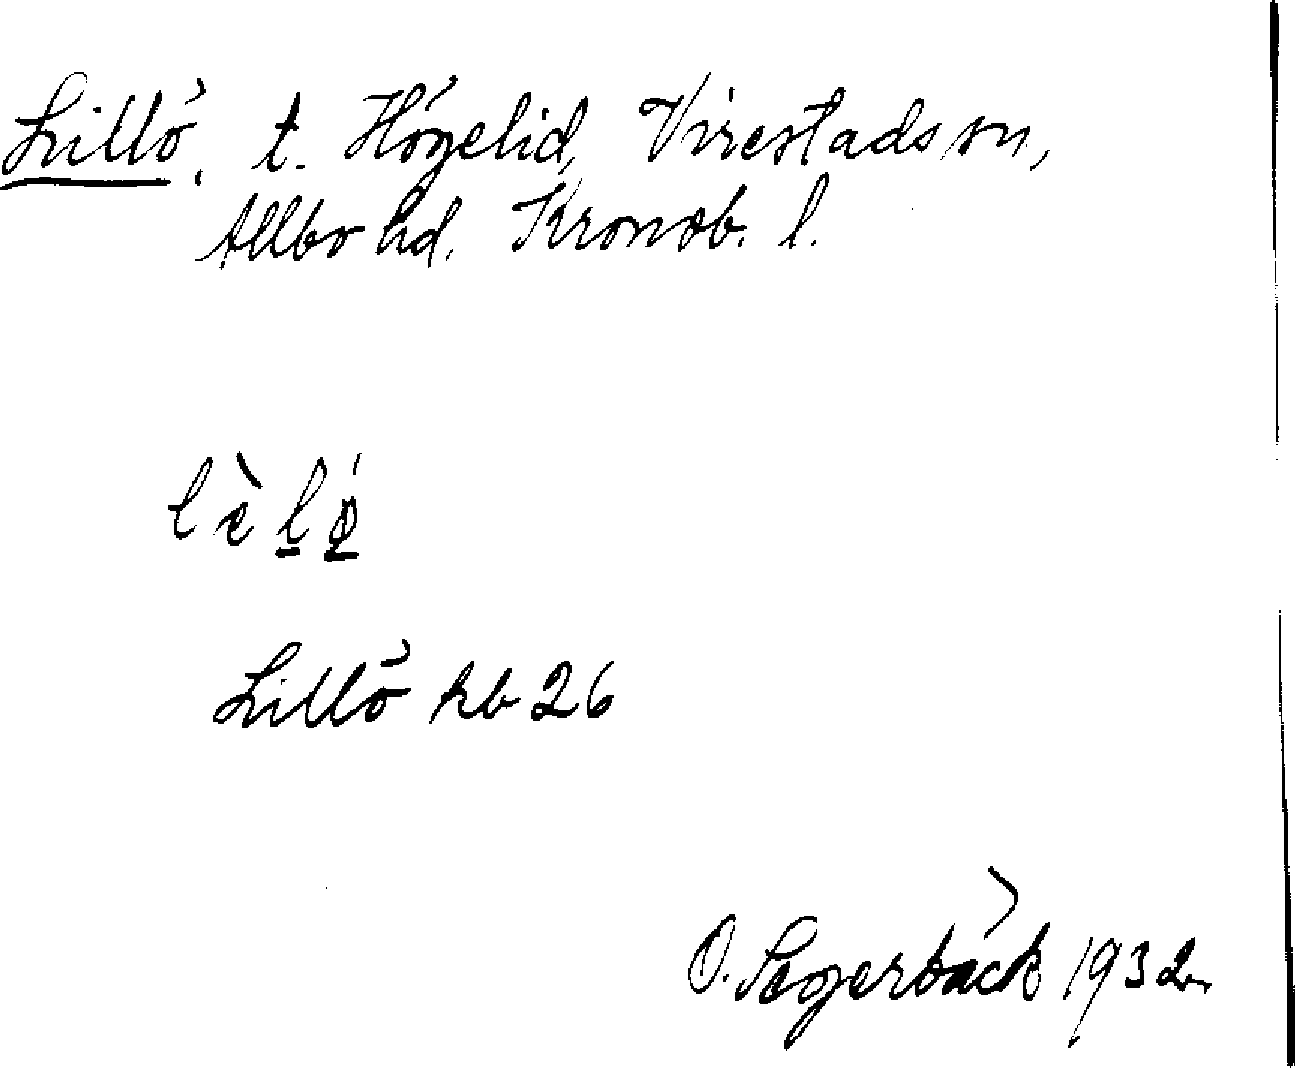 Lillö, t. Högelid, Virestads sn,
Allbo hd. Kronob. l.
lèlǿ
Lillö kb 26
O. Segerbäck 1932